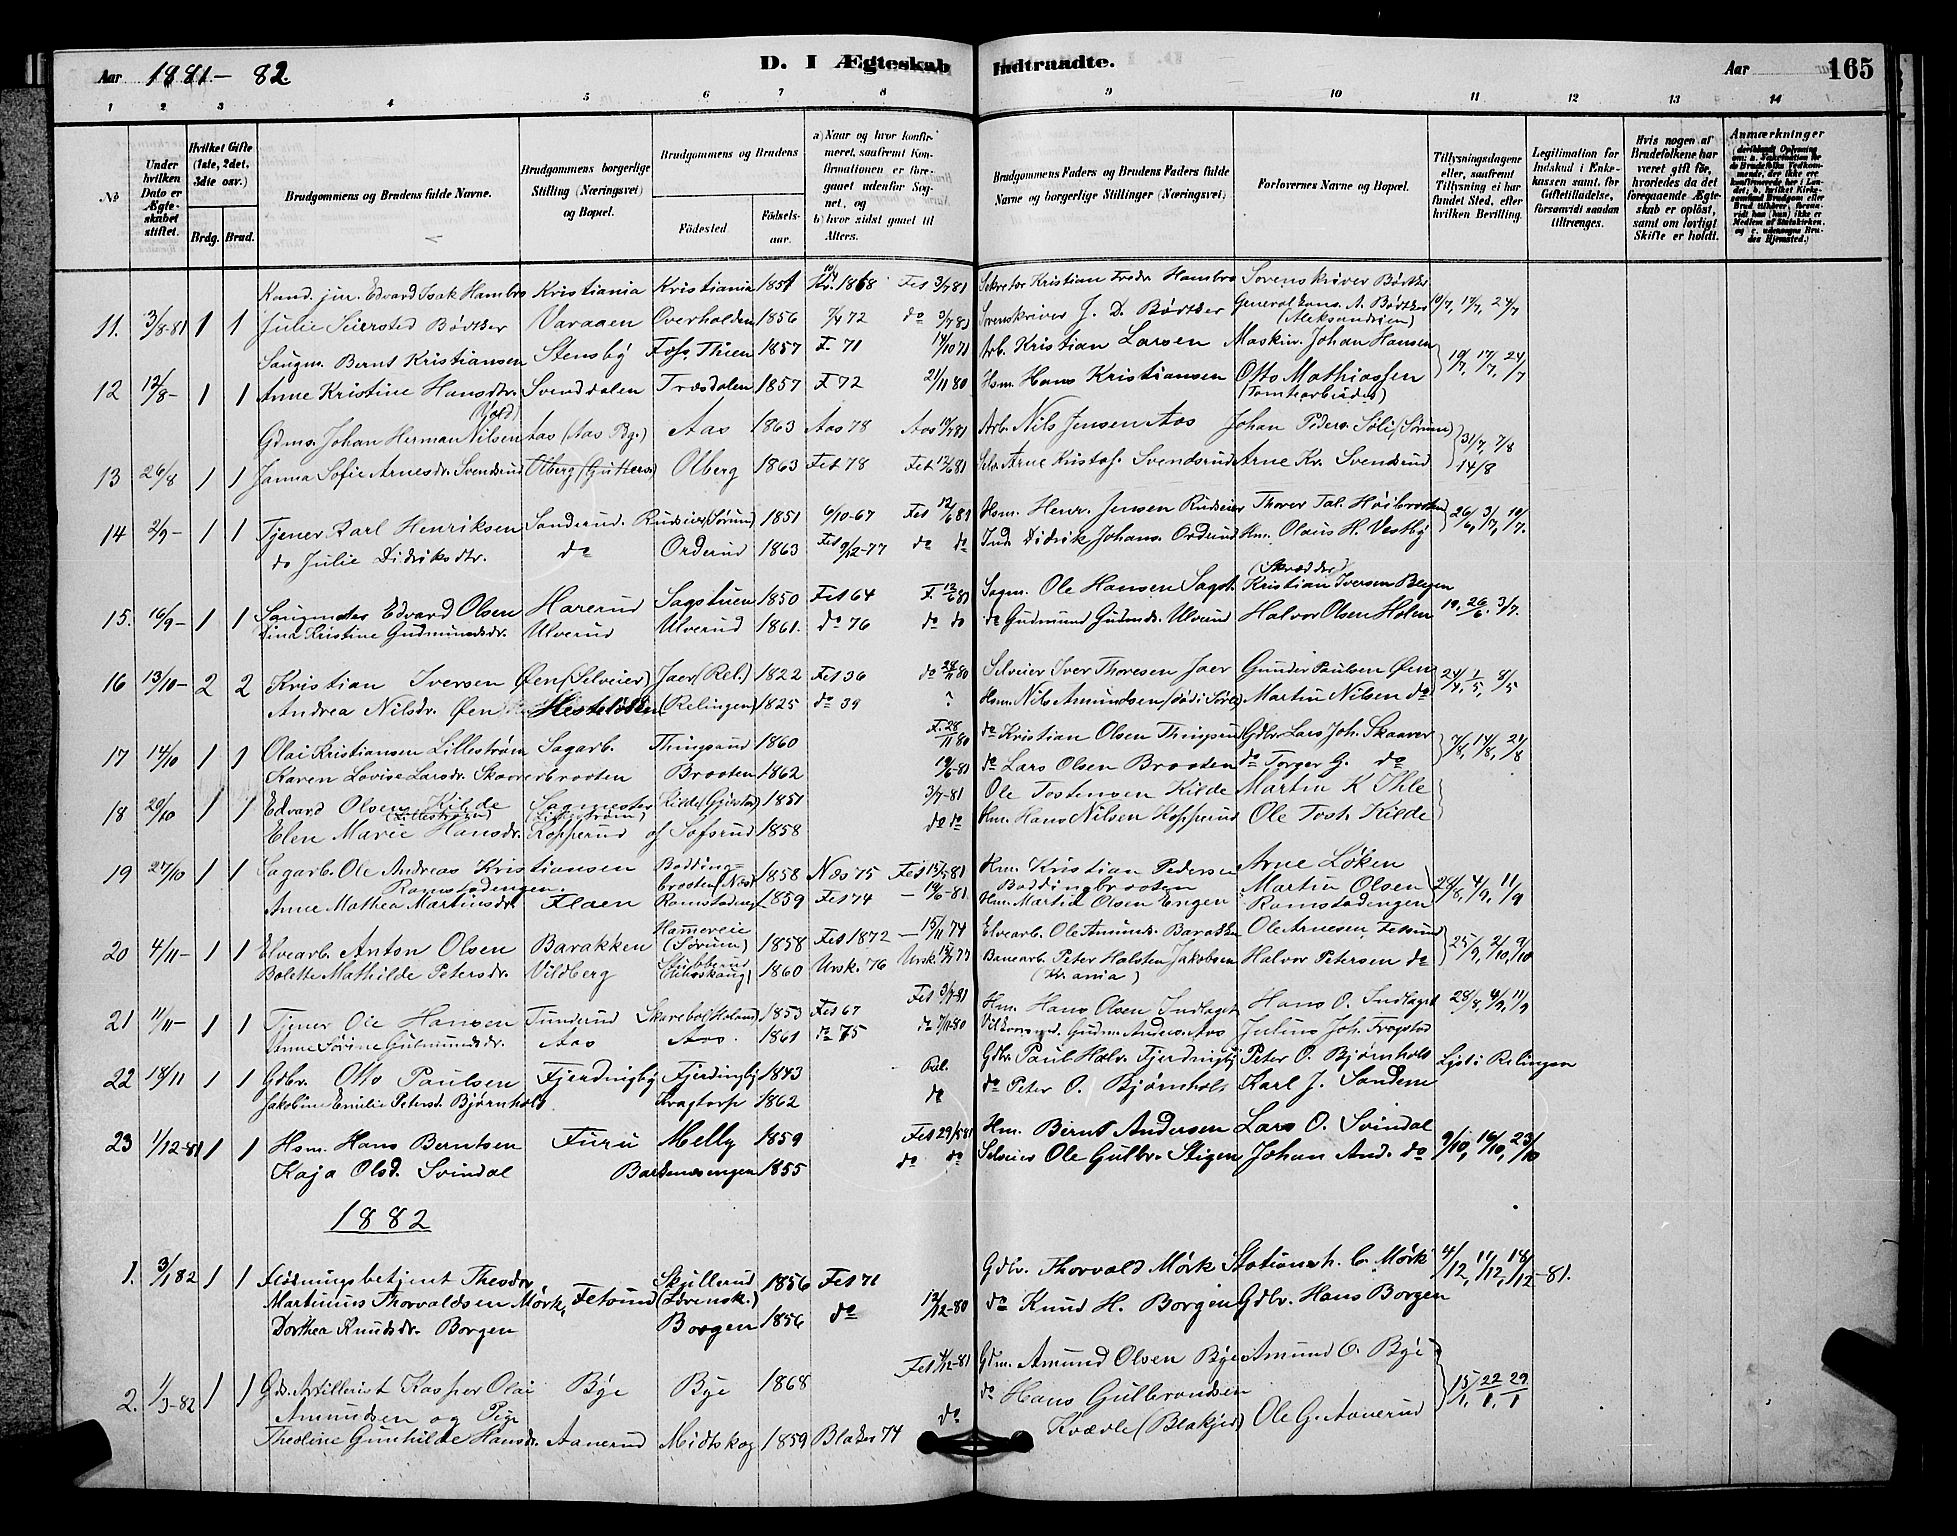 Aar 1881-82. D. I Ægteskab Indtraadte. Aar 165
1 2 3 4 5 6 7 8 9 10 11 12 13 14
№
Under hvilken Dato er Ægteskabet stiftet.
Hvilket Gifte (1ste, 2det, 3die osv.)
Brdg. Brud.
Brudgommens og Brudens fulde Navne.
Brudgommens borgerlige Stilling (Næringsvei) og Bopæl.
Brudgommens og Brudens
Fødested. Fødselsaar.
a) Naar og hvor konfirmeret, saafremt Konfirmationen er foregaaet udenfor Sognet, og
b) hvor sidst gaaet til Alters.
Brudgommens Faders og Brudens Faders fulde Navne og borgerlige Stillinger (Næringsvei)
Forlovernes Navne og Bopæl.
Tillysningsdagene eller, saafremt Tillysning ei har fundet Sted, efter hvilken Bevilling.
Legitimation for Indskud i Enkekassen samt. for Giftetilladelse, forsaavidt saadan tiltrænges.
Hvis nogen af Brudefolkene har været gift før, hvorledes da det foregaaende Ægteskab er opløst, samt om lovligt Skifte er holdt.
Anmærkninger
Kand. jur. Edvard Isak Hambro Kristiania Kristiania 1851 Kr. 1868 Fet 3/7 81 Sekretær Kristian Fredr. Hambro Sorenskriver Bødtker
11. 3/8-81 1 1 Julie Seiersted Bødtker Varaaen Overhalden 1856 7/4 72 do 3/7 81 Sorenskriver J. D. Bødtker Generalkons. A. Bødtker (Aleksandrien) 10/7, 17/7, 24/7
Saugm. Bernt Kristiansen Stensby Foss Thien 1857 F. 71 Arb. Kristian Larsen Maskin. Johan Hansen
12 12/8- 1 1 Anne Kristine Hansdtr. Svenddalen Træsdalen 1857 F 72 21/11 80 Hsm. Hans Kristiansen Otto Mathiassen (Tomtearbeider) 10/7, 17/7, 24/7
Gdms. Johan Herman Nilsen Aas (Aas Bg.) Aas 1863 Aas 78 Aas 10/7 81 Arb. Nils Jensen Aas Johan Peders. Søli (Sørum)
13 26/8 1 1 Janna Sofie Arnesdr. Svendsrud Olberg Olberg 1863 Fet 78 Fet 12/6 81 Selv. Arne Kristof. Svendsrud Arne Kr. Svendsrud 31/7, 7/8 14/8
14 2/9- 1 1 Tjener Karl Henriksen Sanderud. Rudseier (Sørum) 1851 6/10-67 Fet 12/6 81 Hsm. Henr. Jensen Rudseier Thorer Tol. Høibraaten 26/6, 3/7, 10/7.
do Julie Didriksdtr. do Orderud 1863 Fet 9/12-77 do do Ind. Didrik Johans. Orderud Hm. Olaus H. Vestby
15. 16/9- 1 1 Saugmester Edvard Olsen Harerud Sagstuen 1850 Fet 64 F. 12/6 81 Sagm. Ole Hansen Sagst. (Skrædder) Kristian Iversen Bergen
Lina Kristine Gudmundsdr. Ulverud Ulverud 1861. do 76 do do do Gudmund Gudmds. Ulverud Halvor Olsen Holen 19, 26/6, 3/7.
16 13/10- 2 2 Kristian Iversen Øen (Selveier) Jaer (Rel.) 1822 Fet 36 do 28/11 80 Selveier Iver Thoresen Jaer Gunder Paulsen Øen 24/4, 1/5, 8/5
Andrea Nilsdr. Øen Hesteløkken (Relingen) 1825 do 39 ? Hsm. Nils Amundsen Martin Nilsen do
17 14/10 1 1 Olai Kristiansen Lillestrøm Sagarb. Thingsrud 1860 F. 28/11 80 do Kristian Olsen Thingsrud Gdbr. Lars Joh. Skaarer 7/8, 14/8, 21/8
Karen Lovise Larsdr. Skaarerbraaten Braaten 1862 19/6-81 do Lars Olsen Braaten do Torger G. do
18 20/10 1 1 Edvard Olsen Kilde (Lillestrøm) Sagmester (Lillestrøm) Kilde 1851 3/7-81 Ole Tostensen Kilde Martin K Ihle
Elen Marie Hansdr. Kopperud af Sofsrud 1858 do do Hm. Hans Nilsen Kopperud Ole Tost. Kilde
19 27/10 1 1 Sagarb. Ole Andreas Kristiansen Ramstadengen. Boddingbraaten (Næs) 1858 Næs 75 Fet 15/5 81 Hm. Kristian Pedersen Boddingbraaten Arne Løken
Anne Mathea Martinsdr. Flaen Ramstadeng. 1859 Fet 74 - 19/6-81. Hm. Martin Olsen Engen Martin Olsen Ramstadengen 28/8, 4/9, 11/9
20 4/11- 1 1 Elvearb. Anton Olsen Barakken Hammereie (Sørum) 1858 Fet 1872 - 15/11 74 Elvearb. Ole Amunds. Barakken Ole Arnesen, Fetsund
Bolette Mathilde Petersdr. Vildberg 1860 Ursk. 76 Ursk. Banearb. Peter Halsten Jakobsen (Kr.ania) Halvor Petersen do 25/9, 2/10, 9/10
21 11/11- 1 1 Tjener Ole Hansen Tunderud Skarebøl (Høland) 1853 Fet 67 Fet 3/7-81 Hm. Hans Olsen Indlaget Hans O. Indlaget 28/8, 4/9, 11/9
Anne Sørine Gulmundsdr. Aas Aas. 1861 do 75 do 7/11-80 Gudm. Anders. Aas Julius Joh. Fragstad
22 18/11 1 1 Gdbr. Otto Paulsen Fjerdingby Fjerdingby 1843 Rel. Gdbr. Paul Halv. Fjerdingby Peter O. Bjørnholt Lyst i Relingen
Jakobine Emilie Petersd. Bjørnholt. Kragtorp 1862 do do Peter O. Bjørnholt Karl J. Sandem
23 1/12-81 1 1 Hsm. Hans Berntsen Furu Melby 1859 Fet 29/5 81 Hm. Bernt Andersen Lars O. Svindal
Kaja Olsd. Svindal Bardenesengen 1855 do do Selveier Ole Gulbr. Stigen Johan And. do 9/10, 16/10, 23/10
1882
1. 3/1 82 1 1 Flødningsbetjent Theodor Martinius Thorvaldsen Mørk, Fetsund Skjullerud 1856 Fet 71 Gdbr. Thorvald Mørk Stationsh. C. Mørk 4/12, 11/12, 18/12-81.
Dorthea Knudsdr. Borgen Borgen 1856 do 12/12-80 do Knud H. Borgen Gdbr. Hans Borgen
2. 1/3-82 1 1 Gds. Artillerist Kasper Olai Amundsen og Pige Bye Bye 1868 Fet 4/12-81 Gdm. Amund Olsen Bye Amund O. Bye
Theoline Gunhilde Hansdr. Aanerud Midtskog 1859 Blaker 74 do do Hans Gulbrandsen Kvævle (Blakjer) Ole G. Aanerud 15/1, 22/1, 29/1